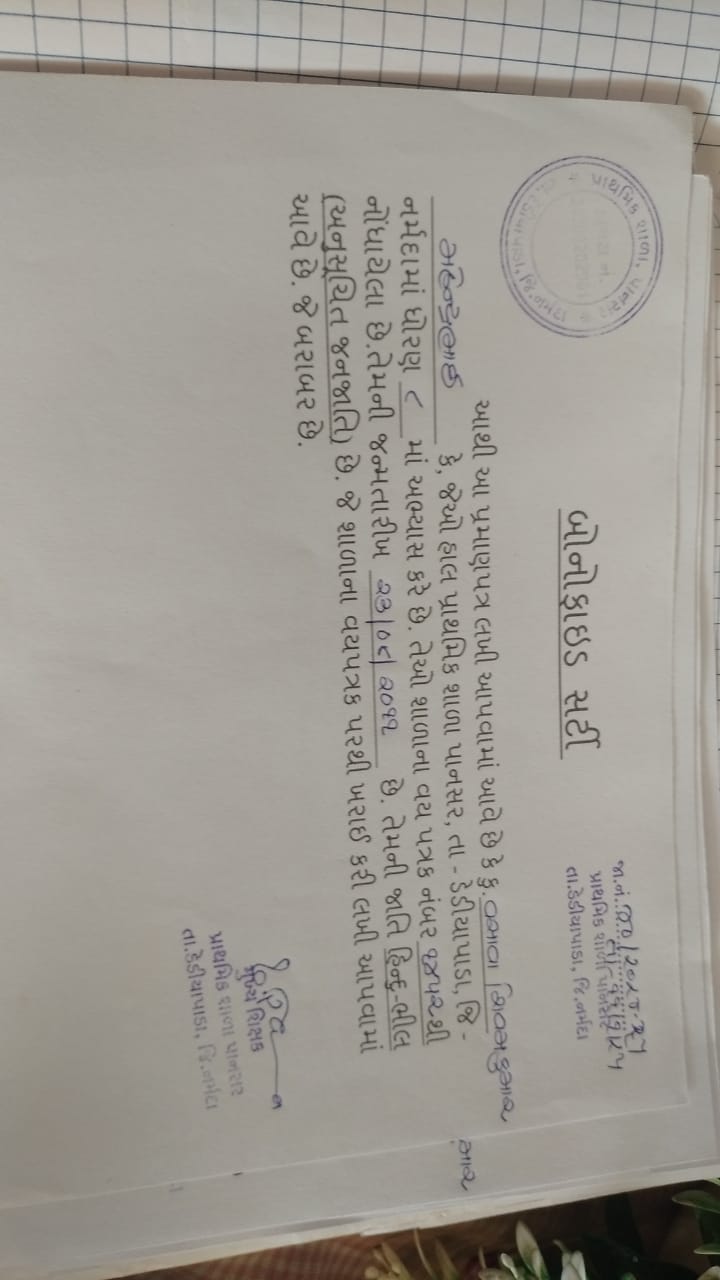 પ્રાથમિક શાળા, પાનસર
તા.દેડીયાપાડા, જિ.નર્મદા
બોનોફાઇડ સર્ટી
આથી આ પ્રમાણપત્ર લખી આપવામાં આવે છે કે કુ. વસાવા
મહેન્દ્રભાઈ કે, જેઓ હાલ પ્રાથમિક શાળા પાનસર, તા - દેડીયાપાડા, જિ -
નર્મદામાં ધોરણ ૮ માં અભ્યાસ કરે છે. તેઓ શાળાના વય પત્રક નંબર થી
નોંધાયેલા છે.તેમની જન્મતારીખ છે. તેમની જાતિ હિન્દુ-ભીલ
(અનુસૂચિત જનજાતિ) છે. જે શાળાના વયપત્રક પરથી ખરાઈ કરી લખી આપવામાં
આવે છે. જે બરાબર છે.
મુખ્ય શિક્ષક
પ્રાથમિક શાળા પાનસર
તા.દેડીયાપાડા, જિ.નર્મદા